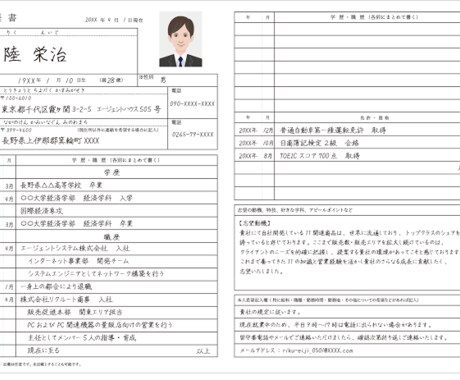 書
20XX 年 4 月 1 日現在
りく えいじ
陸 栄治
19XX 年 1 月 10 日生 (満 28 歳)
男
〒100-6013
東京都千代田区霞ヶ関3-2-5 エージェントハウス505号
電話
090-XXXX-XXXX
〒399-4600
長野県上伊那郡箕輪町XXXX
電話
0265-79-XXXX
月
学 歴・職 歴 (各別にまとめて書く)
学 歴
3月 長野県△△高等学校 卒業
4月 〇〇大学経済学部 経済学科 入学
国際経済専攻
3月 〇〇大学経済学部 経済学科 卒業
職 歴
4月 エージェントシステム株式会社 入社
インターネット事業部 開発チーム
システムエンジニアとしてネットワーク構築を行う
1月 一身上の都合により退職
4月 株式会社リクルート商事 入社
販売促進本部 関東エリア担当
PC および PC 関連機器の量販店向けの営業を行う
主任としてメンバー5人の指導・育成
現在に至る 以上
年 月 学 歴・職 歴 (各別にまとめて書く)
年 月 免 許・資 格
20XX年 12月 普通自動車第一種運転免許 取得
20XX年 6月 日商簿記検定2級 合格
20XX年 8月 TOEIC スコア900点 取得
志望の動機、特技、好きな学科、アピールポイントなど
【志望動機】
貴社にて自社開発している IT 関連商品は、世界に流通しており、トップクラスのシェアを
誇っていると存じております。ここまで販売数・販売エリアを拡大し続けているのは、
クライアントのニーズを的確に把握し、
これまで養ってきた IT の知識と営業経験を活かし貴社のさらなる成長に貢献したく、
志望いたしました。
貴社の規定に従います。
現在就業中のため、平日9時〜17時は電話に出られない場合があります。
留守番電話やメールでご連絡いただけましたら、確認次第折り返しご連絡いたします。
メールアドレス:riku-eiji_0501@XXXX.com